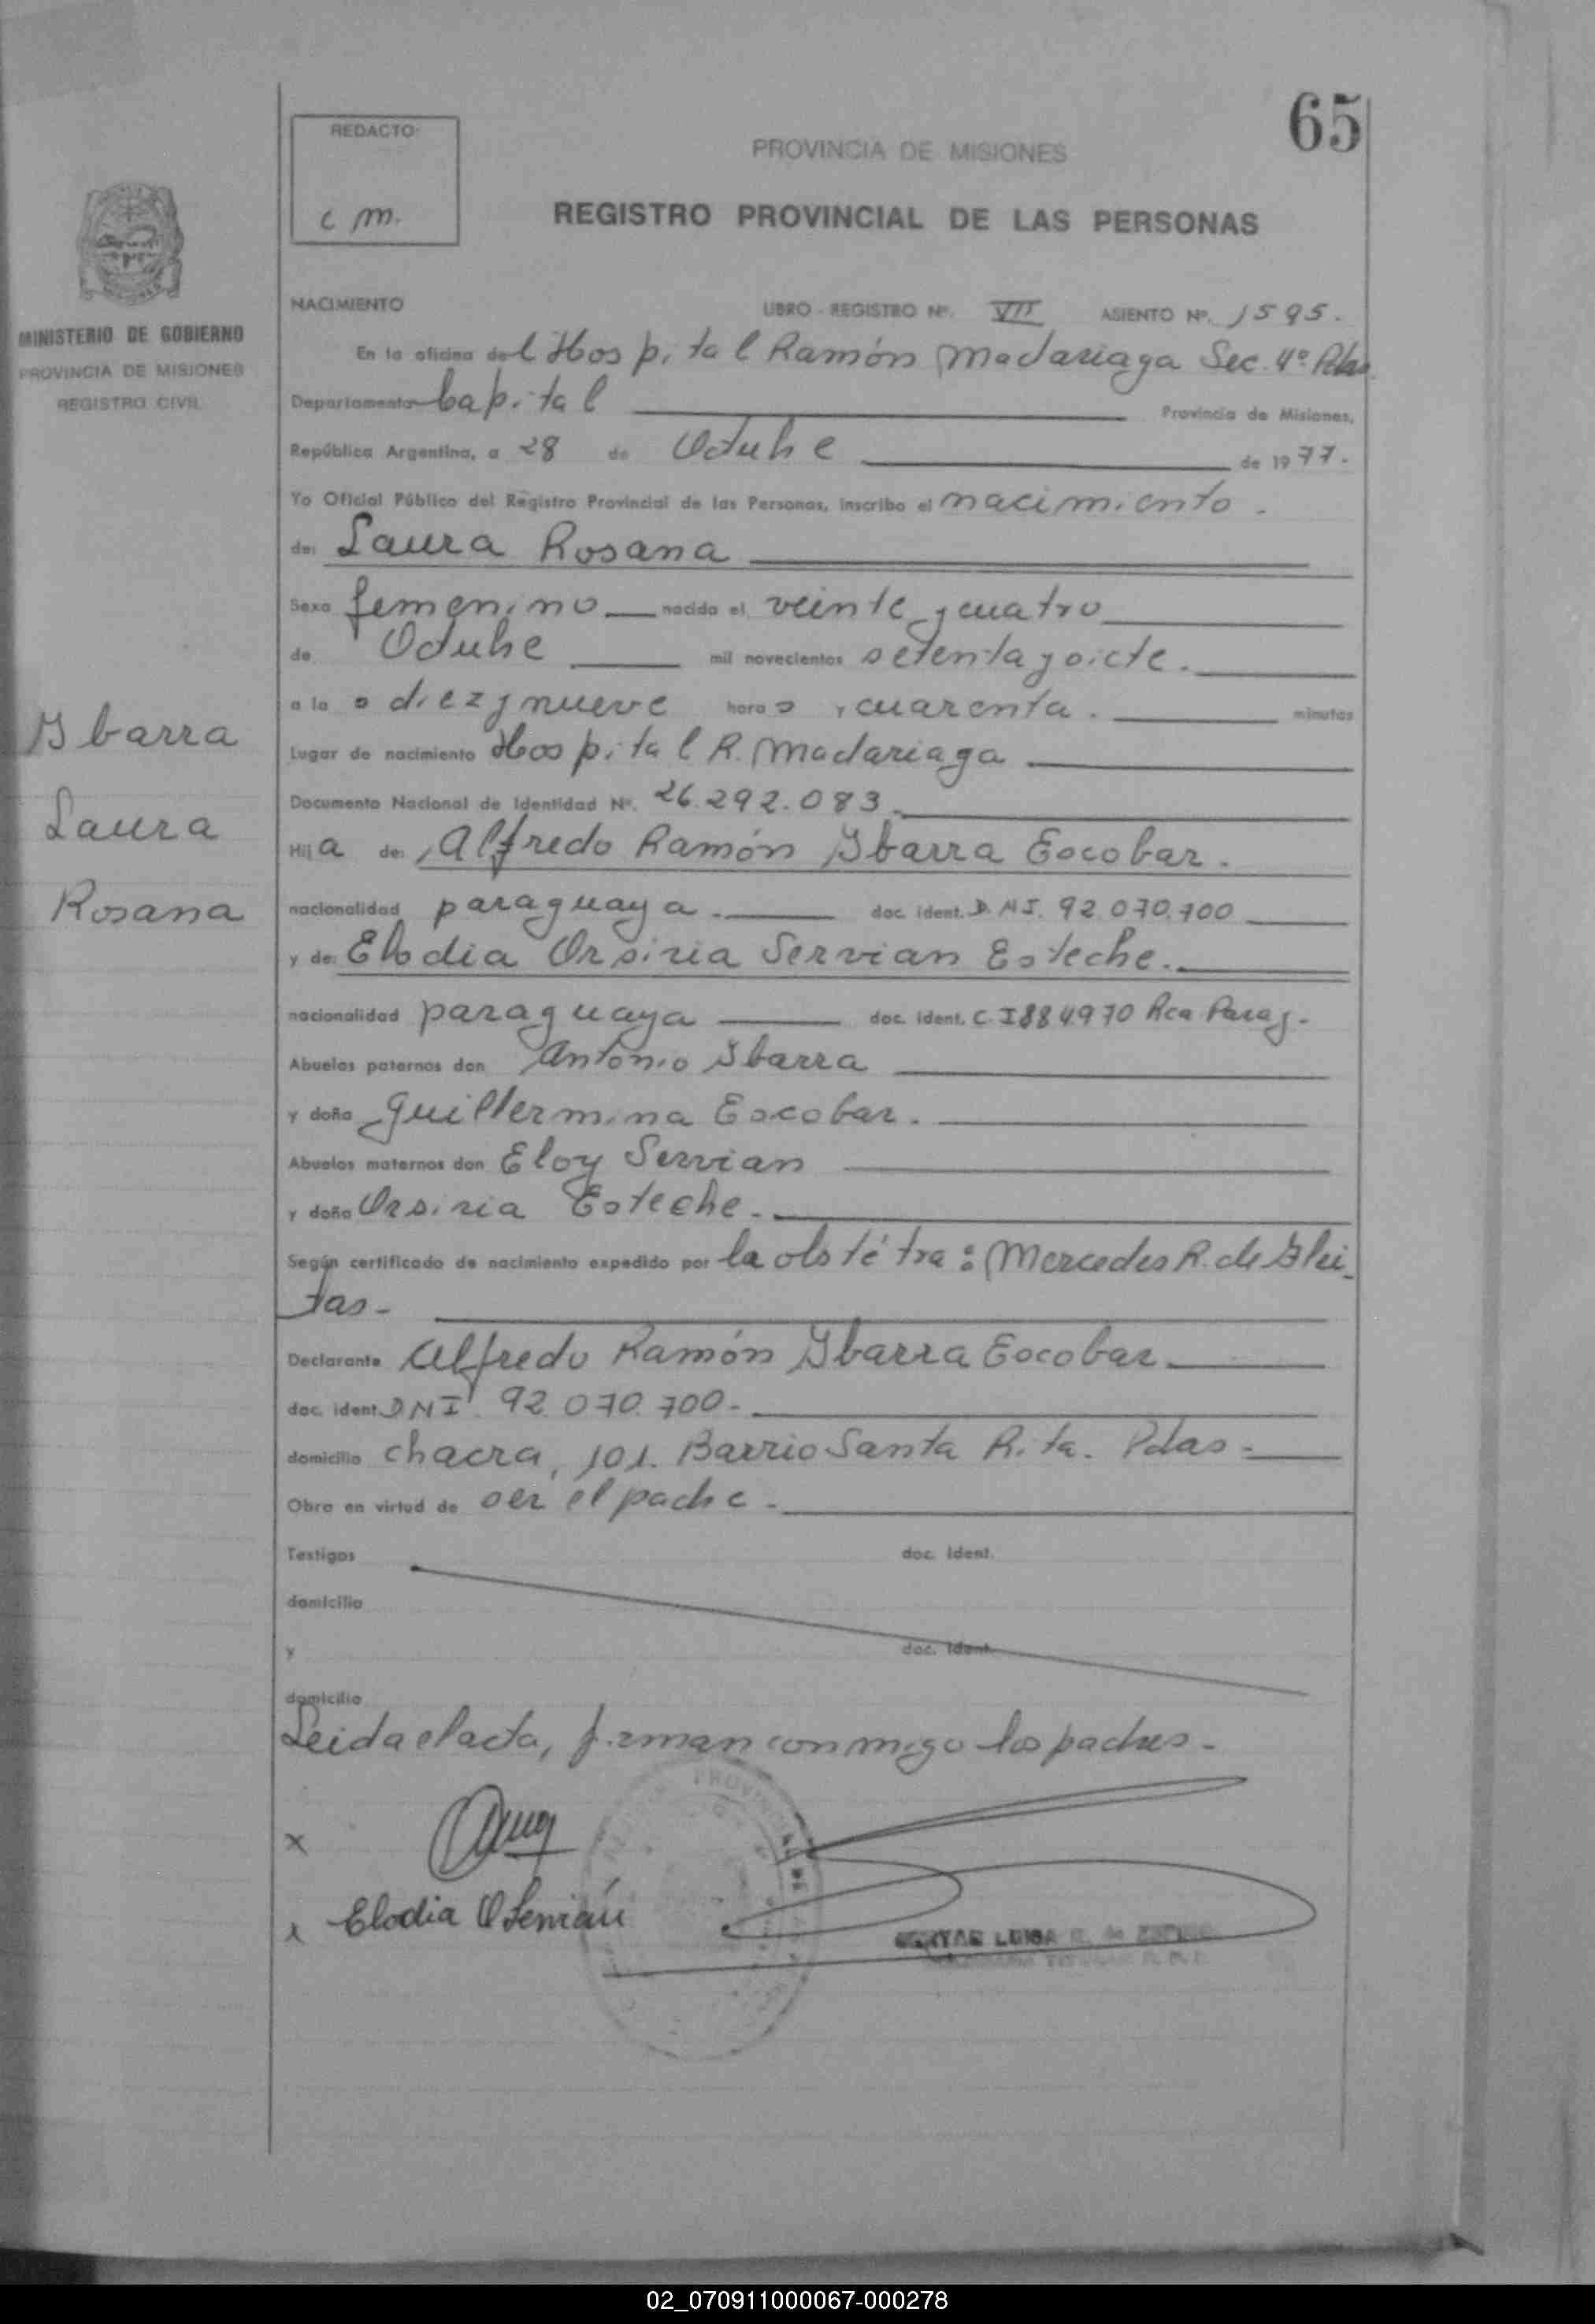 65
REDACTO:
c m.
PROVINCIA DE MISIONES
REGISTRO PROVINCIAL DE LAS PERSONAS
MINISTERIO DE GOBIERNO
PROVINCIA DE MISIONES
REGISTRO CIVIL
NACIMIENTO LIBRO - REGISTRO Nº. VII ASIENTO Nº. 1595.
En la oficina del Hospital Ramón Madariaga Sec. 4º Pdas.
Departamento Capital Provincia de Misiones,
República Argentina, a 28 de Octubre de 1977.
Yo Oficial Público del Registro Provincial de las Personas, inscribo el nacimiento.
de: Laura Rosana
Sexo femenino nacido el veinte y cuatro
de Octubre mil novecientos setenta y siete.
a la s diez y nueve hora s y cuarenta. minutos
Lugar de nacimiento Hospital R. Madariaga
Documento Nacional de Identidad Nº. 26.292.083.
Ibarra
Laura
Rosana
Hij a de: Alfredo Ramón Ibarra Escobar.
nacionalidad paraguaya. doc. ident. D.N.I. 92.070.700
y de: Elodia Orsiria Servian Esteche.
nacionalidad paraguaya doc. ident. C.I 884970 Rca Parag.
Abuelos paternos don Antonio Ibarra
y doña Guillermina Escobar.
Abuelos maternos don Eloy Servian
y doña Orsiria Esteche.
Según certificado de nacimiento expedido por la obstétra: Mercedes R. de Glei-
tas-
Declarante Alfredo Ramón Ibarra Escobar
doc. ident. DNI. 92.070.700-
domicilio chacra, 101. Barrio Santa Rita. Pdas-
Obra en virtud de ser el padre.
Testigos doc. ident.
domicilio
y doc. ident.
domicilio
Leida el acta, firman conmigo los padres-
x
x Elodia O Servián
LUISA
02_070911000067-000278